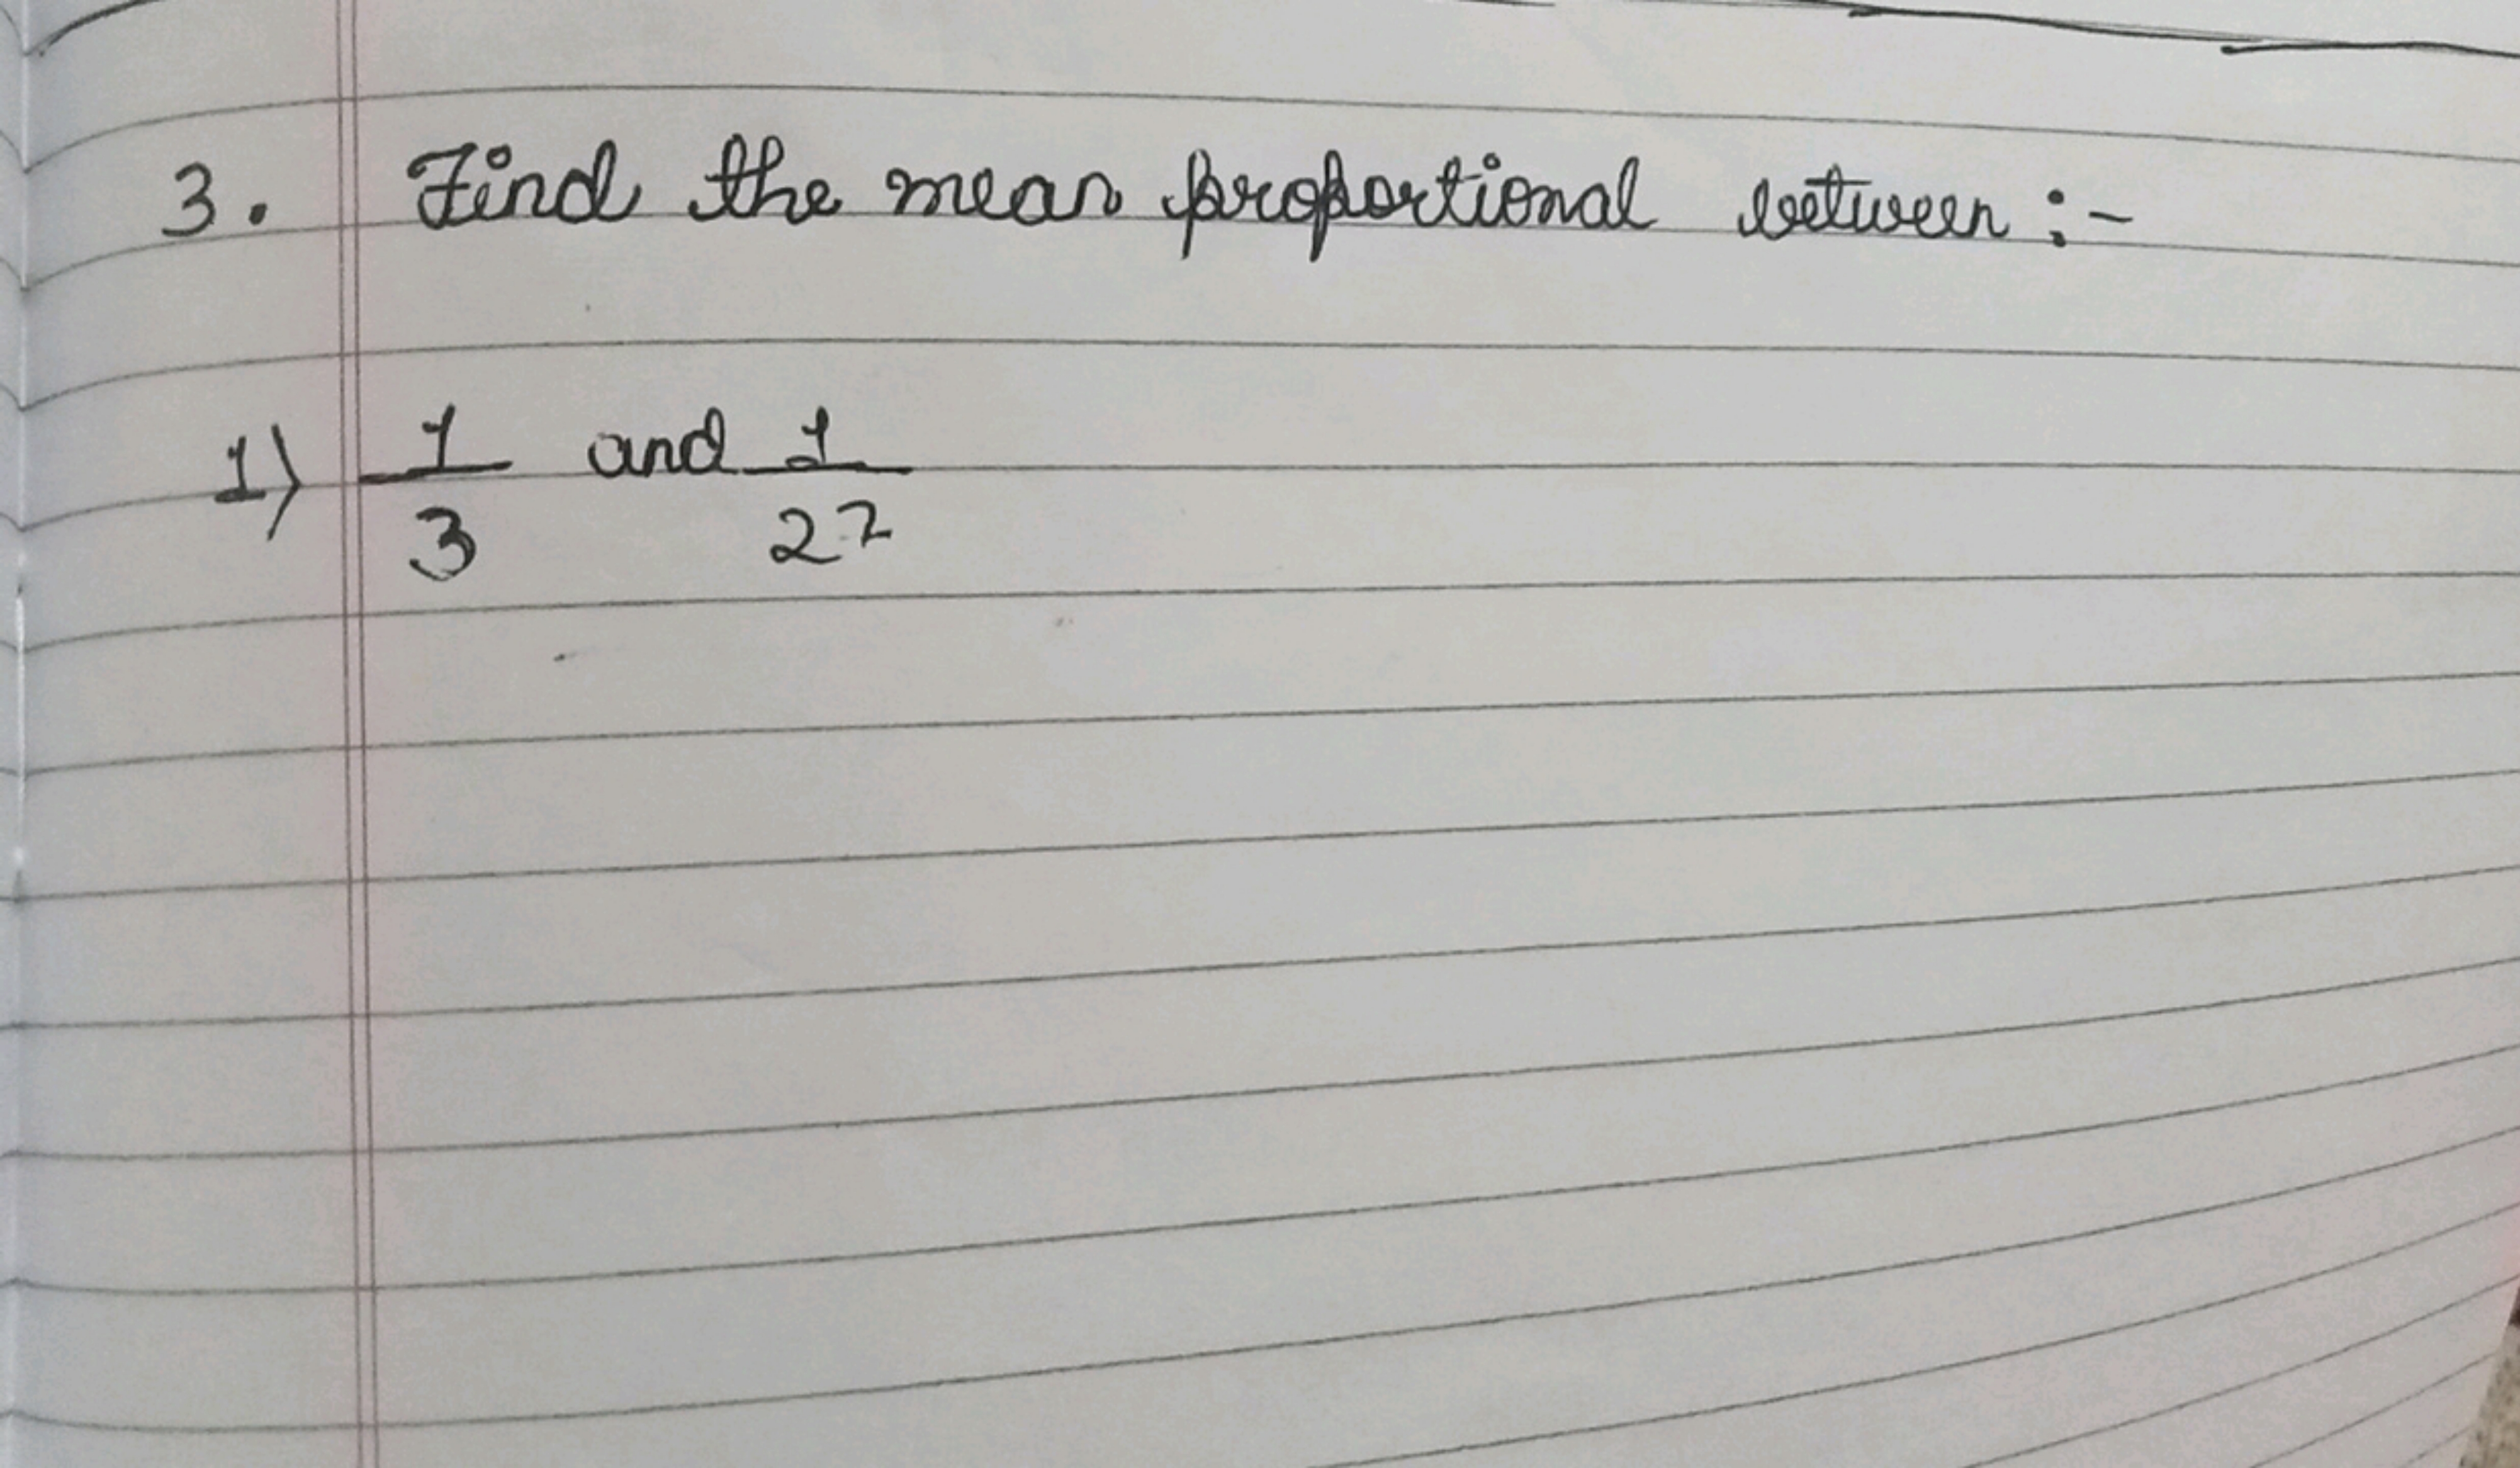 3. Find the mean proportional between :-
1) 1/3 and 1/27